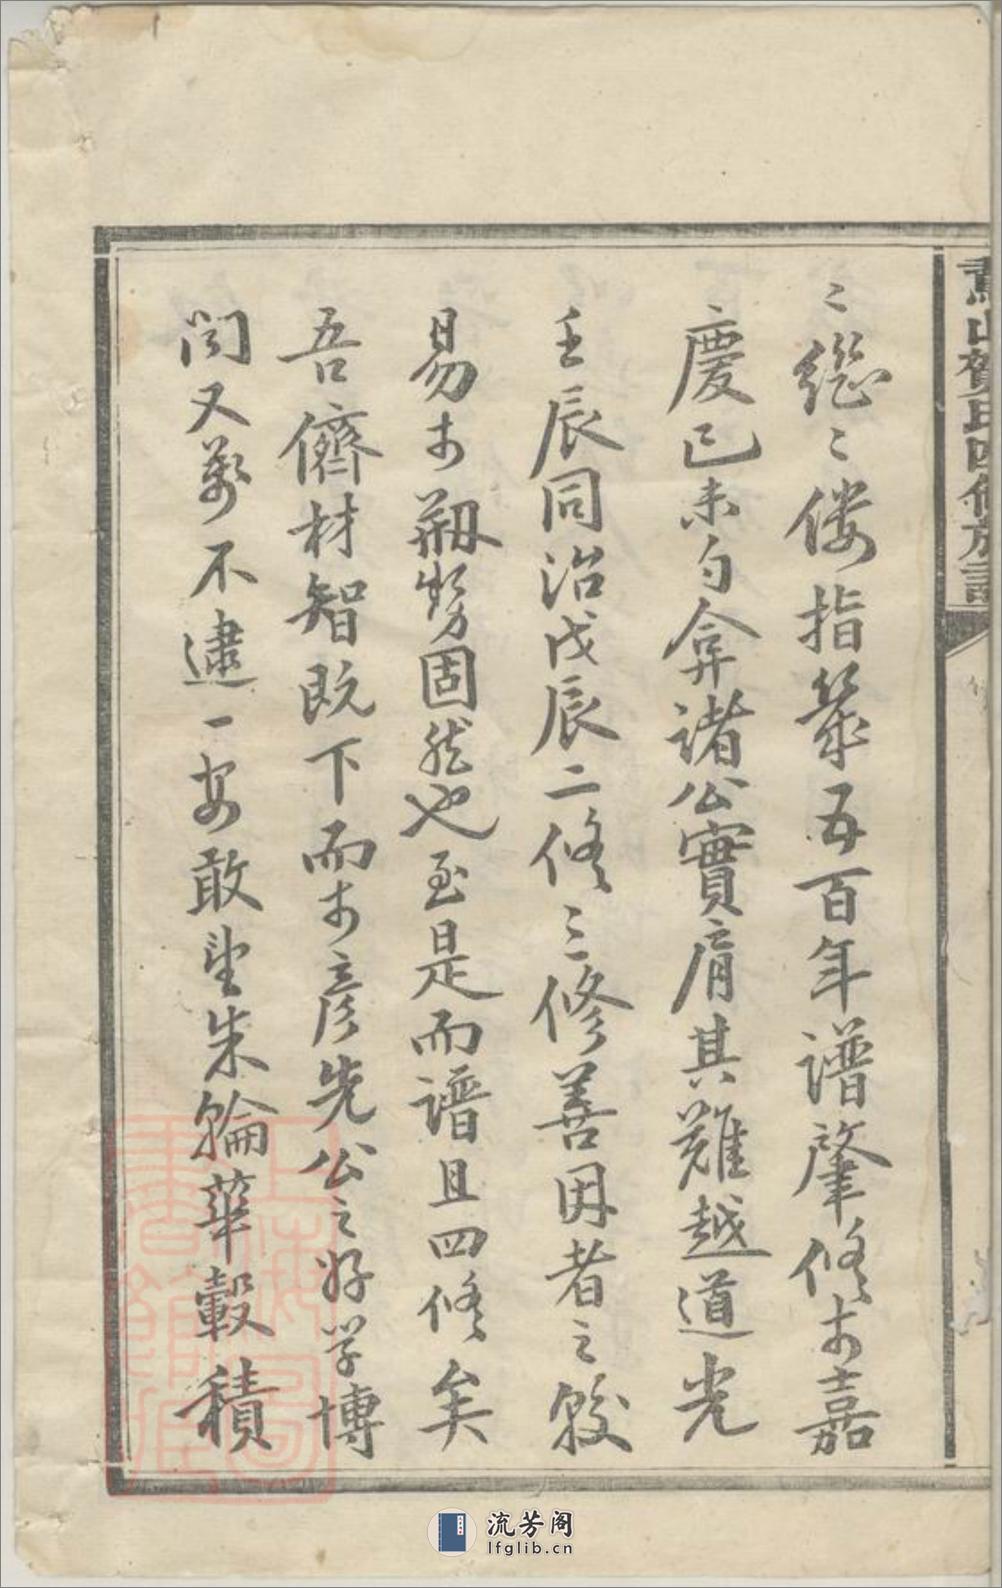 〻繼〻僂指築五百年譜肇修於嘉
慶己未匀弇諸公實肩其難越道光
壬辰同治戊辰二修三修善因者之較
易於剏勢固然也至是而譜且四修矣
吾儕材智既下而於彥先公之好学博
聞又萬不逮一安敢望朱輪華轂積
賀氏四修族譜
流芳阁
lfglib.cn